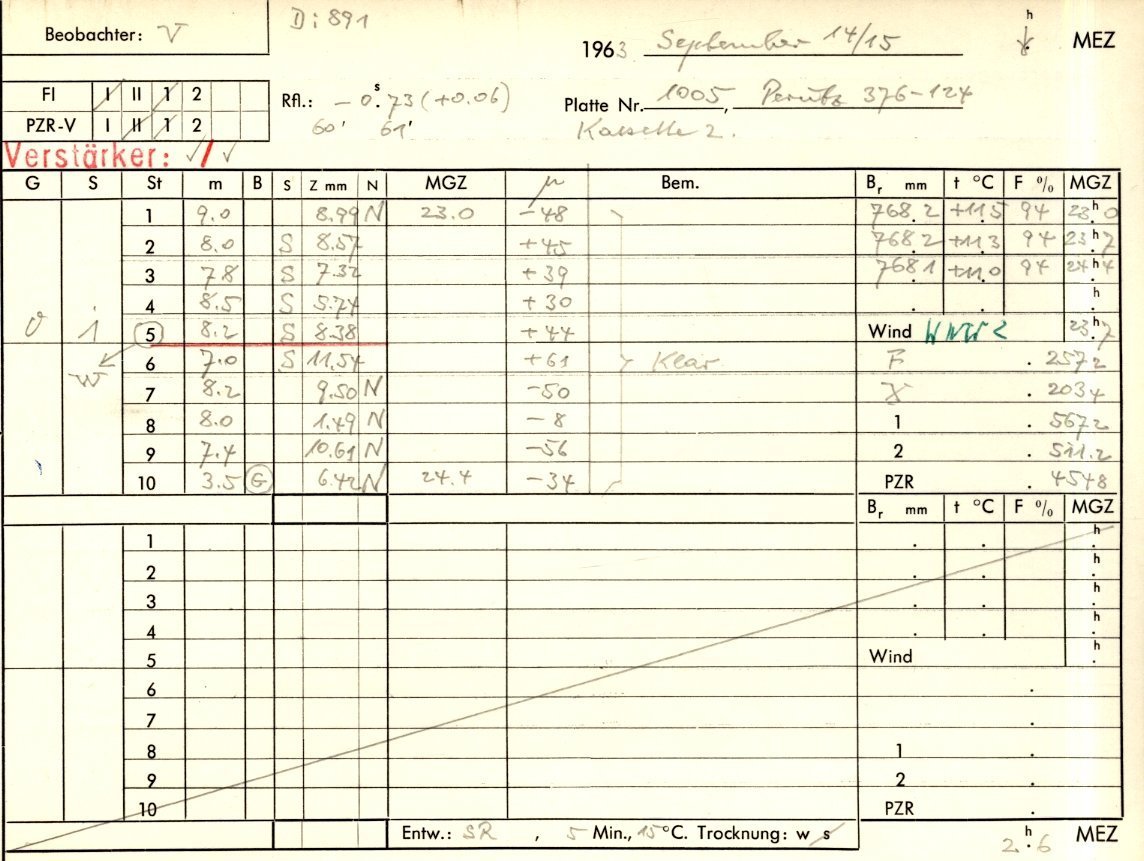 Di 891
Beobachter: V
1963 September 14/15 h MEZ
FI I II 1 2 Rfl.: -0s.73 (+0.06) Platte Nr. 1005, Perutz 376-124
PZR-V I II 1 2 60' 61' Kassette 2.
Verstärker: √/√
G S St m B S Z mm N MGZ μ Bem. Br mm t °C F % MGZ
1 9.0 8.99 N 23.0 -48 768.2 +11.5 94 23h.0
2 8.0 S 8.57 +45 768.2 +11.3 94 23h.7
3 7.8 S 7.32 +39 768.1 +11.0 94 24h.4
4 8.5 S 5.74 +30 . . h
5 8.2 S 8.38 +44 Wind WNW 2 23h.7
6 7.0 S 11.54 +61 Klar F . 2572
w
7 8.2 9.50 N -50 . 2034
8 8.0 1.49 N -8 1 . 5672
9 7.4 10.61 N -56 2 . 511.2
10 3.5 G 6.42 N -34 24.4 PZR . 4548
Br mm t °C F % MGZ
1 . . h.
2 . . h.
3 . . h.
4 . . h.
5 Wind h.
6 .
7 .
8 1 .
9 2 .
10 PZR .
Entw.: SR, 5 Min., 15°C. Trocknung: w s 2h.6 MEZ